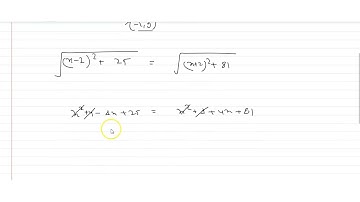 (-7,0)
√((x-2)² + 25) = √((x+2)² + 81)
x² + 4 - 4x + 25 = x² + 4 + 4x + 81